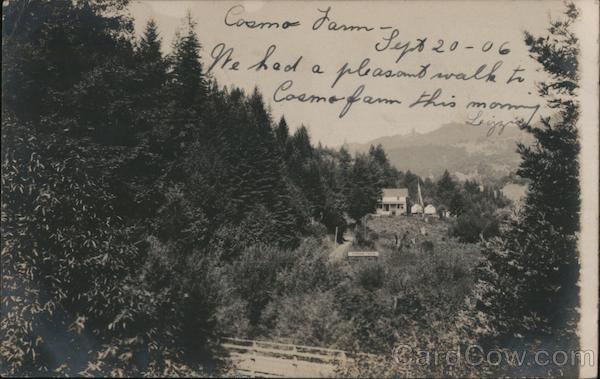 Cosmo Farm -
Sept 20 - 06
We had a pleasant walk to
Cosmo farm this morning
Lizzie
CardCow.com